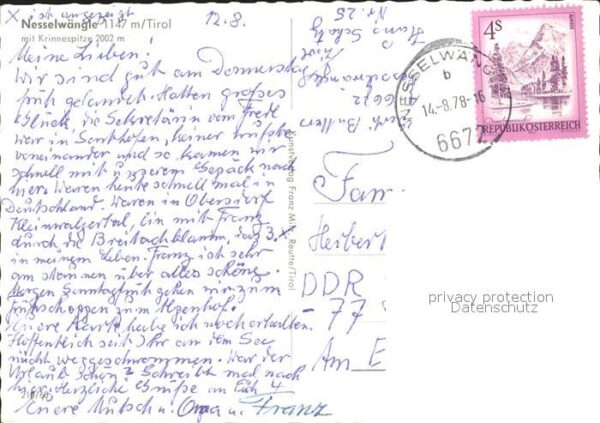 x ist angezeigt
12.8.
Nesselwängle 1147 m/Tirol
mit Krinnespitze 2002 m
Meine Lieben!
Wir sind gut am Donnerstag
früh gelandet. Hatten großes
Glück, die Sekretärin vom Fredl
war in Sonthofen, keiner wußte
voneinander und so kamen wir
schnell mit unserem Gepäck nach
hier. Waren heute schnell mal in
Deutschland. Waren in Obersdorf
Kleinwalzertal, bin mit Franz
durch die Breitachklamm, das 3. x
in meinem Leben. Franz ist sehr
am staunen über alles schöne.
Morgen Sonntagfrüh gehen wir zum
frühschoppen zum
Eure Karte habe ich noch erhalten.
Hoffentlich seit Ihr am See
nicht weggeschwommen. War der
Urlaub schön? Schreibt mal nach
hier. Herzliche Grüße an Euch 4
Eure Mutsch u. Opa u. Franz
Kunstverlag Franz Milz, Reutte/Tirol
Nr. 25
A 6672
NESSELWÄNGLE
b
14.-8.78-16
6672
4S
REPUBLIK ÖSTERREICH
Fam
Heiber
DDR
- 77
Am E
privacy protection
Datenschutz